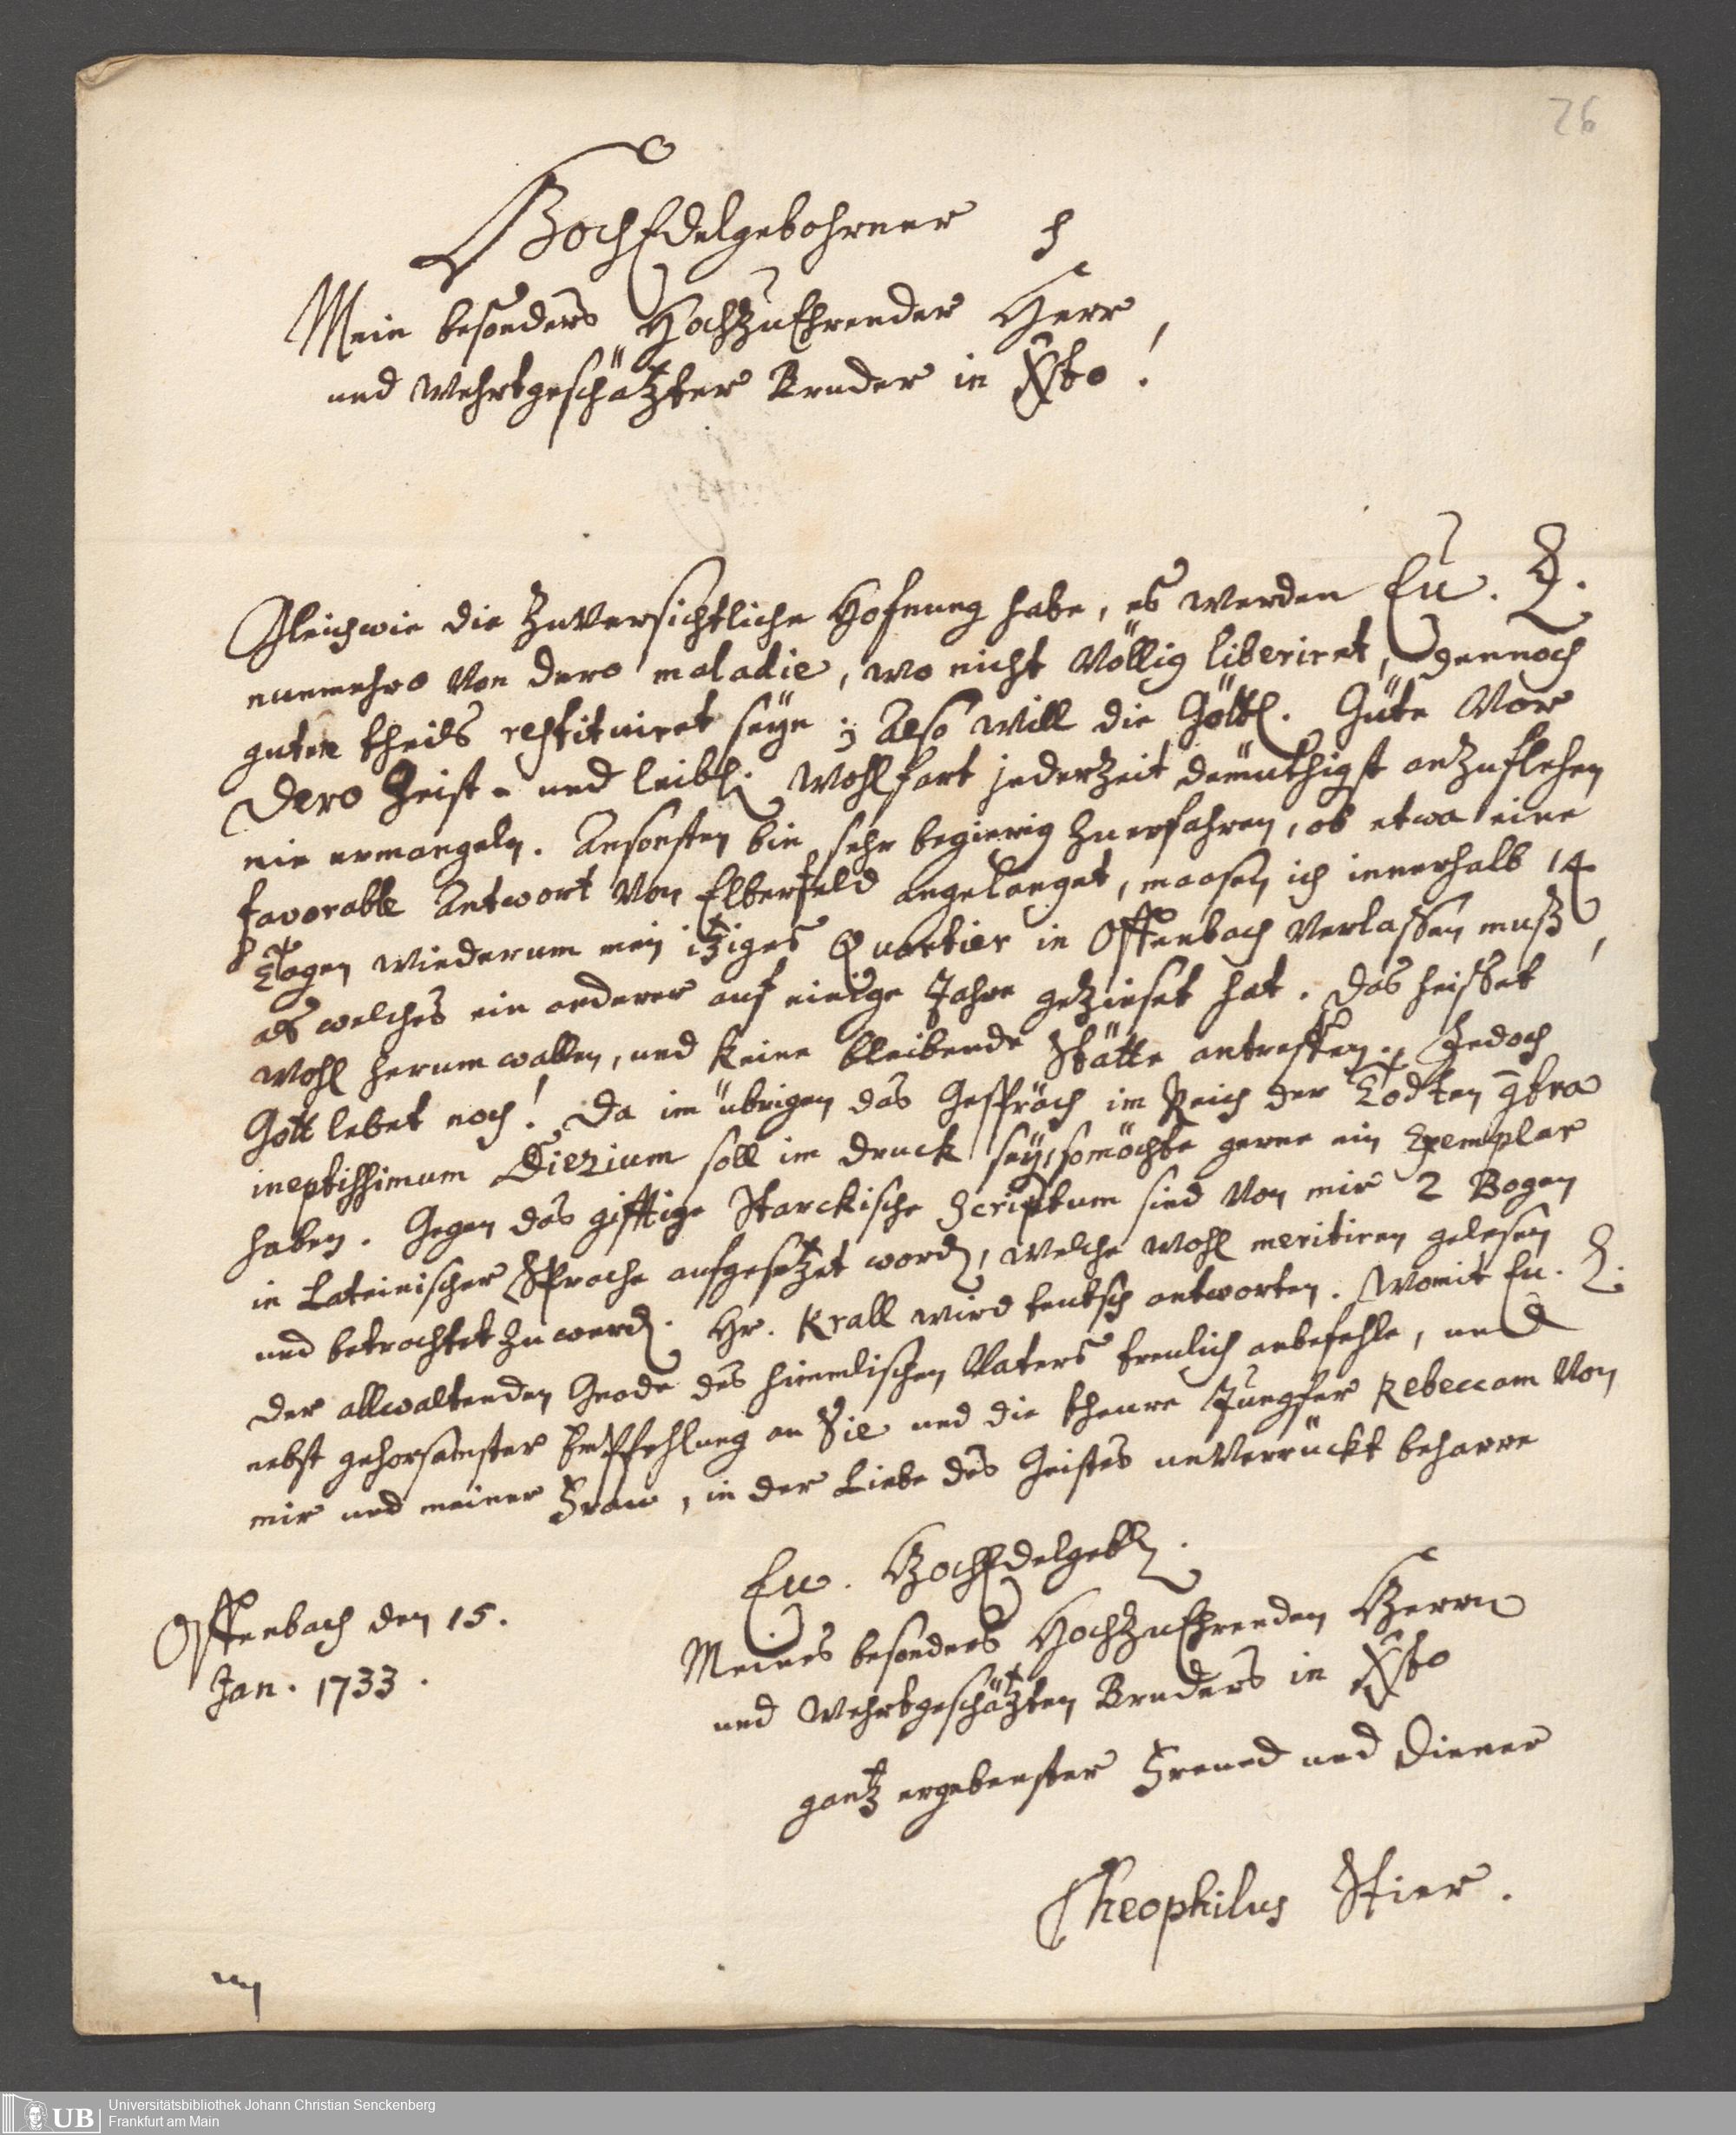 26
HochEdelgebohrner
Mein besonders HochZuEhrender Herr,
und Wehrtgeschätzter Bruder in Xsto!
Gleichwie die Zuversichtliche Hofnung habe, es werden Eu. H.
nunmehro Von dero maladie, wo nicht Völlig liberiret, dennoch
guten theils restituiret seyn; Also will die Göttl. Güte Vor
Dero Geist- und leibl. Wohlfart jederzeit demüthigst anzuflehen
nie ermangeln. Ansonsten bin sehr begierig Zu erfahren, ob etwa eine
favorable Antwort Von Elberfeld angelanget, maasen ich innerhalb 14
Tagen wiederum mein itziges Quartier in Offenbach Verlassen muß,
als welches ein anderer auf einige Jahre gezinset hat. Das heisset
wohl herum wallen, und keine bleibende Stätte antreffen. Jedoch
Gott lebet noch! Da im übrigen das Gespräch im Reich der Todten contra
ineptissimum Diezium soll im druck sey, so möchte gerne ein Exemplar
haben. Gegen das gifftige Starckische Scriptum sind Von mir 2 Bogen
in Lateinischer Sprache aufgesetzet word, welche wohl meritiren gelesen
und betrachtet Zu werd. Hr. Krall wird teutsch antworten. Womit Eu. H.
der allwaltenden Gnade des himmlischen Vaters treulich anbefehle, und
nebst gehorsamster Empfehlung an Sie und die theure Jungfer Rebeccam Von
mir und meiner Frau, in der Liebe des Geistes unVerrückt beharre
Eu. HochEdelgebl.
Meines besonders HochZuEhrenden Herrn
und Wehrtgeschätzten Bruders in Xsto
gantz ergebenster Freund und Diener
Theophilus Stier.
Offenbach den 15.
Jan. 1733.
UB
Universitätsbibliothek Johann Christian Senckenberg
Frankfurt am Main